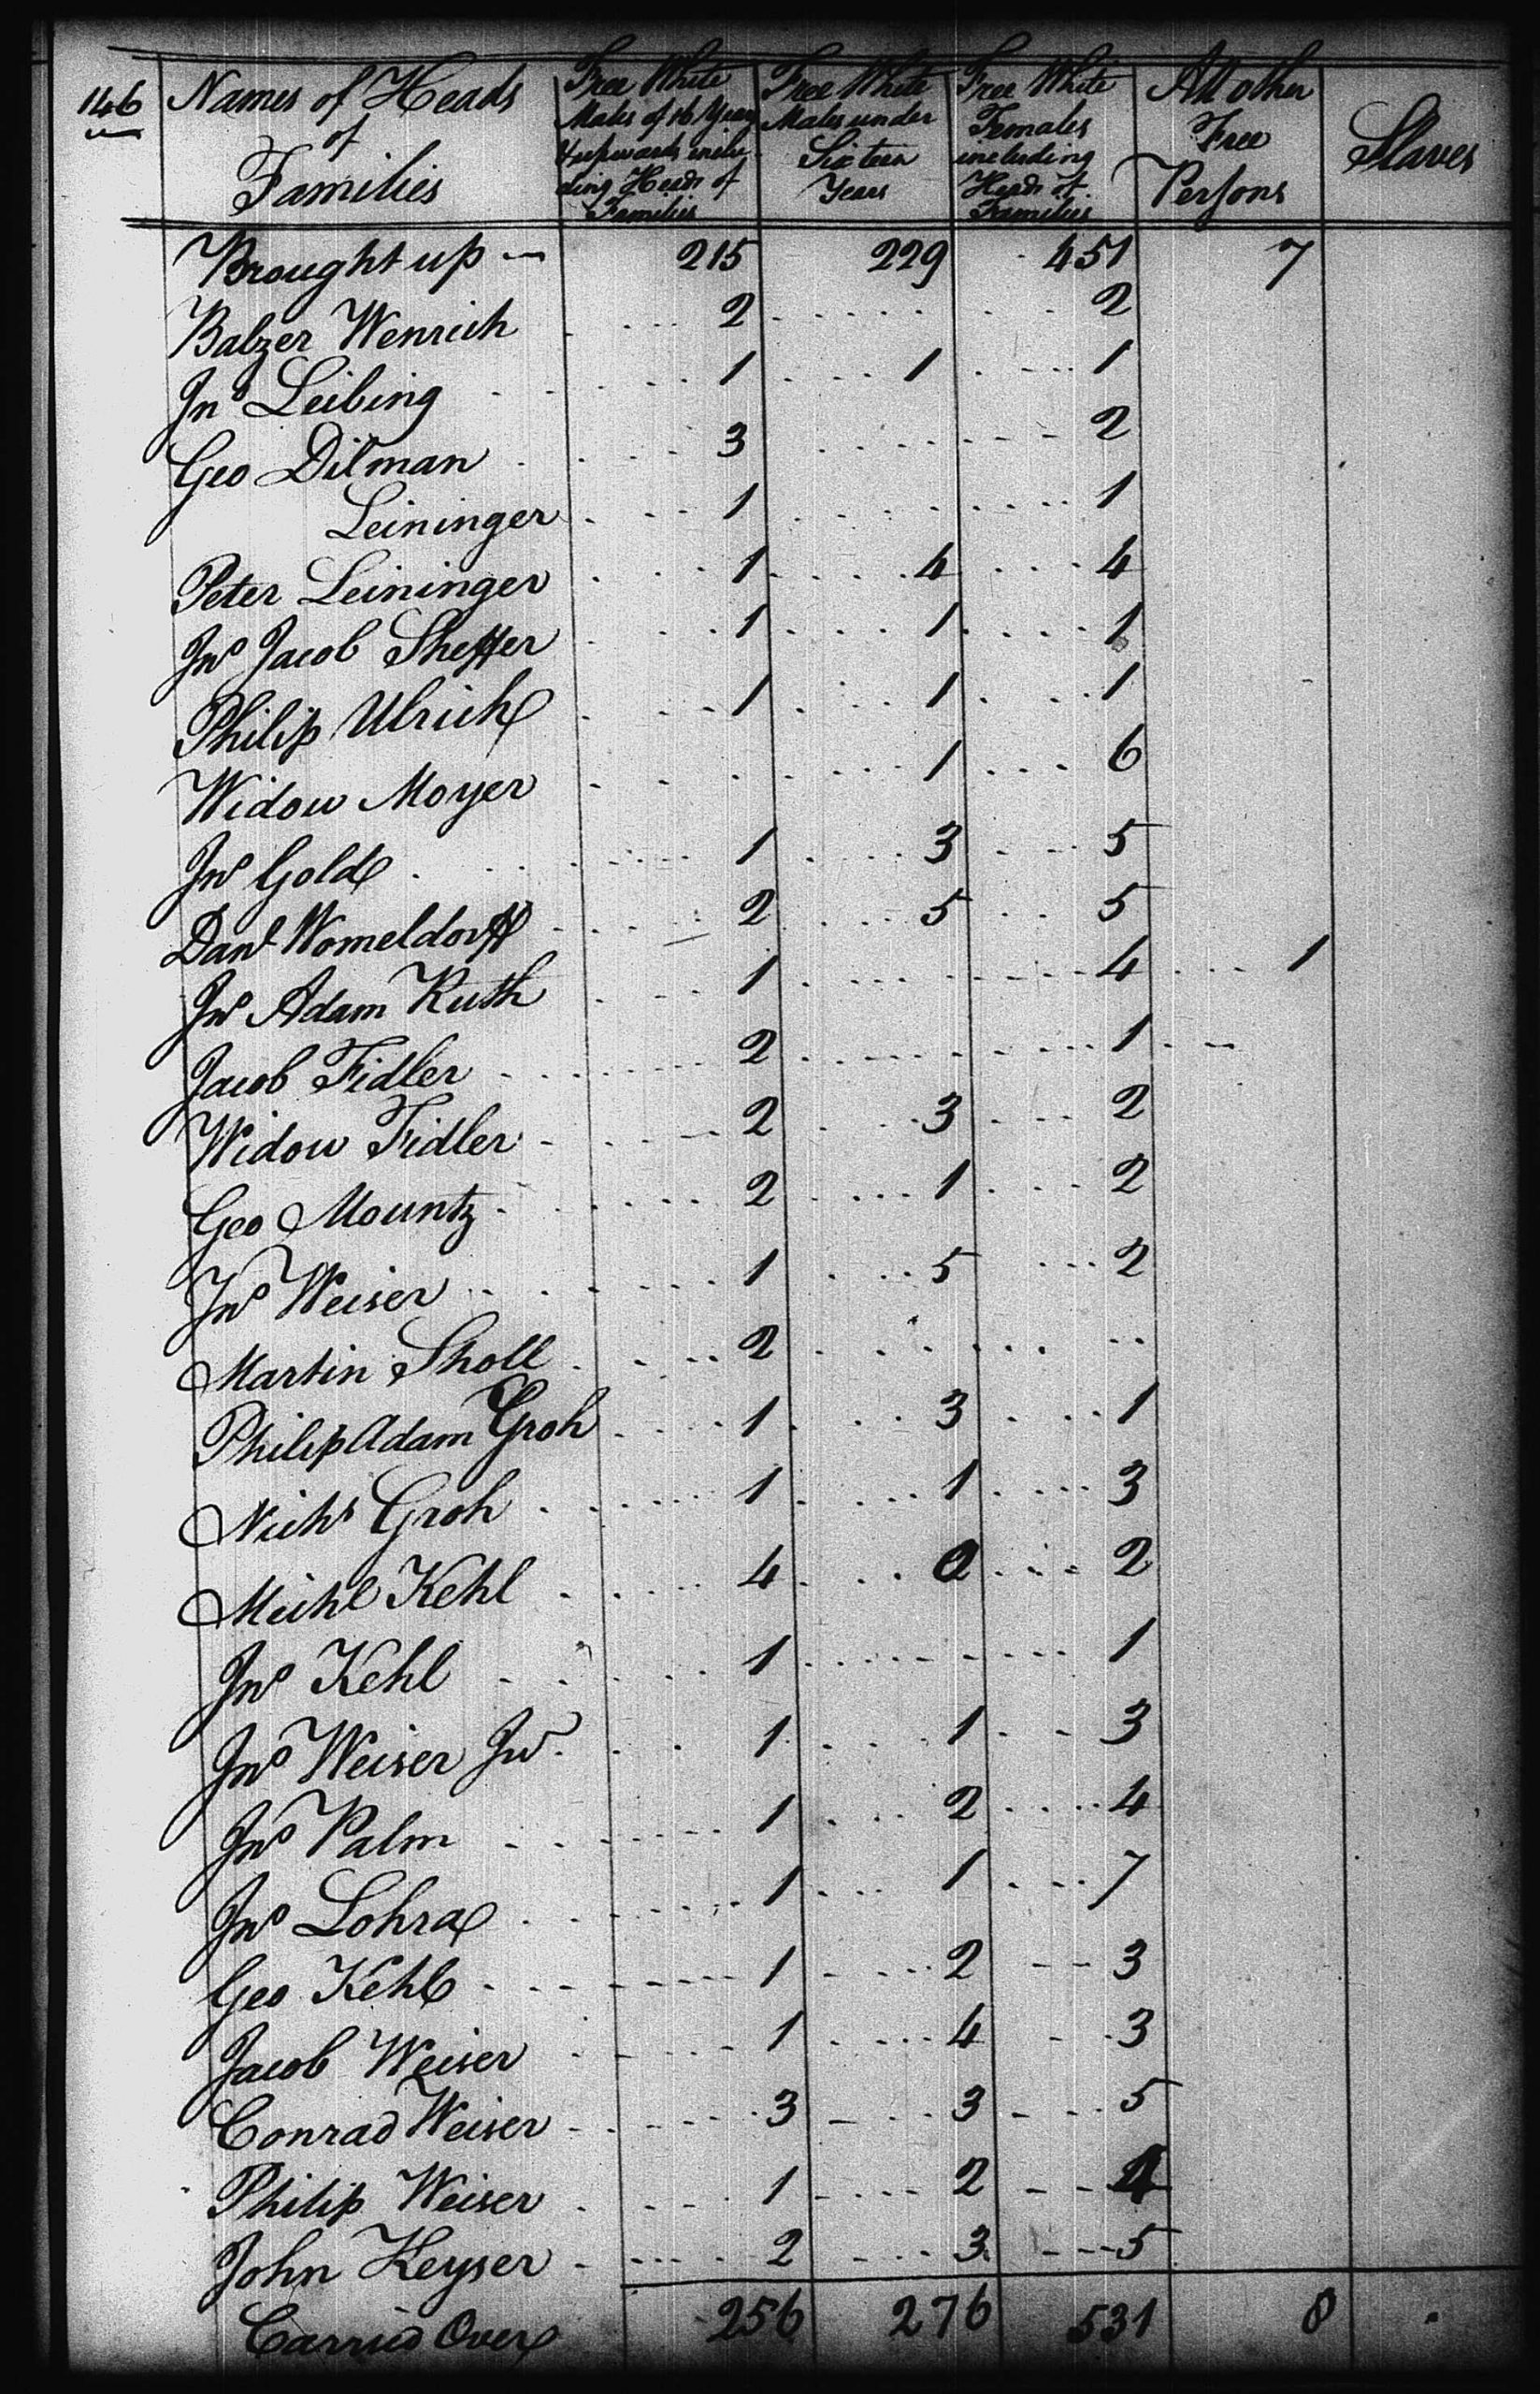 146
Names of Heads of Families | Free White Males of 16 Years & upwards including Heads of Families | Free White Males under Sixteen Years | Free White Females including Heads of Families | All other Free Persons | Slaves
Brought up — 215 229 451 7
Balzer Wenrich 2 2
Jno Leibing 1 1 1
Geo Dilman 3 2
Leininger 1 1
Peter Leininger 1 4 4
Jno Jacob Sheffer 1 1 1
Philip Ulrich 1 1 1
Widow Moyer 1 6
Jno Gold 1 3 5
Danl Womeldorff 2 5 5
Jno Adam Ruth 1 4 1
Jacob Fidler 2 1
Widow Fidler 2 3 2
Geo Mountz 2 1 2
Jno Weiser 1 5 2
Martin Sholl 2
Philip Adam Groh 1 3 1
Nichs Groh 1 1 3
Michl Kehl 4 2 2
Jno Kehl 1 1
Jno Weiser Jur 1 1 3
Jno Palm 1 2 4
Jno Lohra 1 1 7
Geo Kehl 1 2 3
Jacob Weiser 1 4 3
Conrad Weiser 3 3 5
Philip Weiser 1 2 4
John Keyser 2 3 5
Carried Over 256 276 531 8